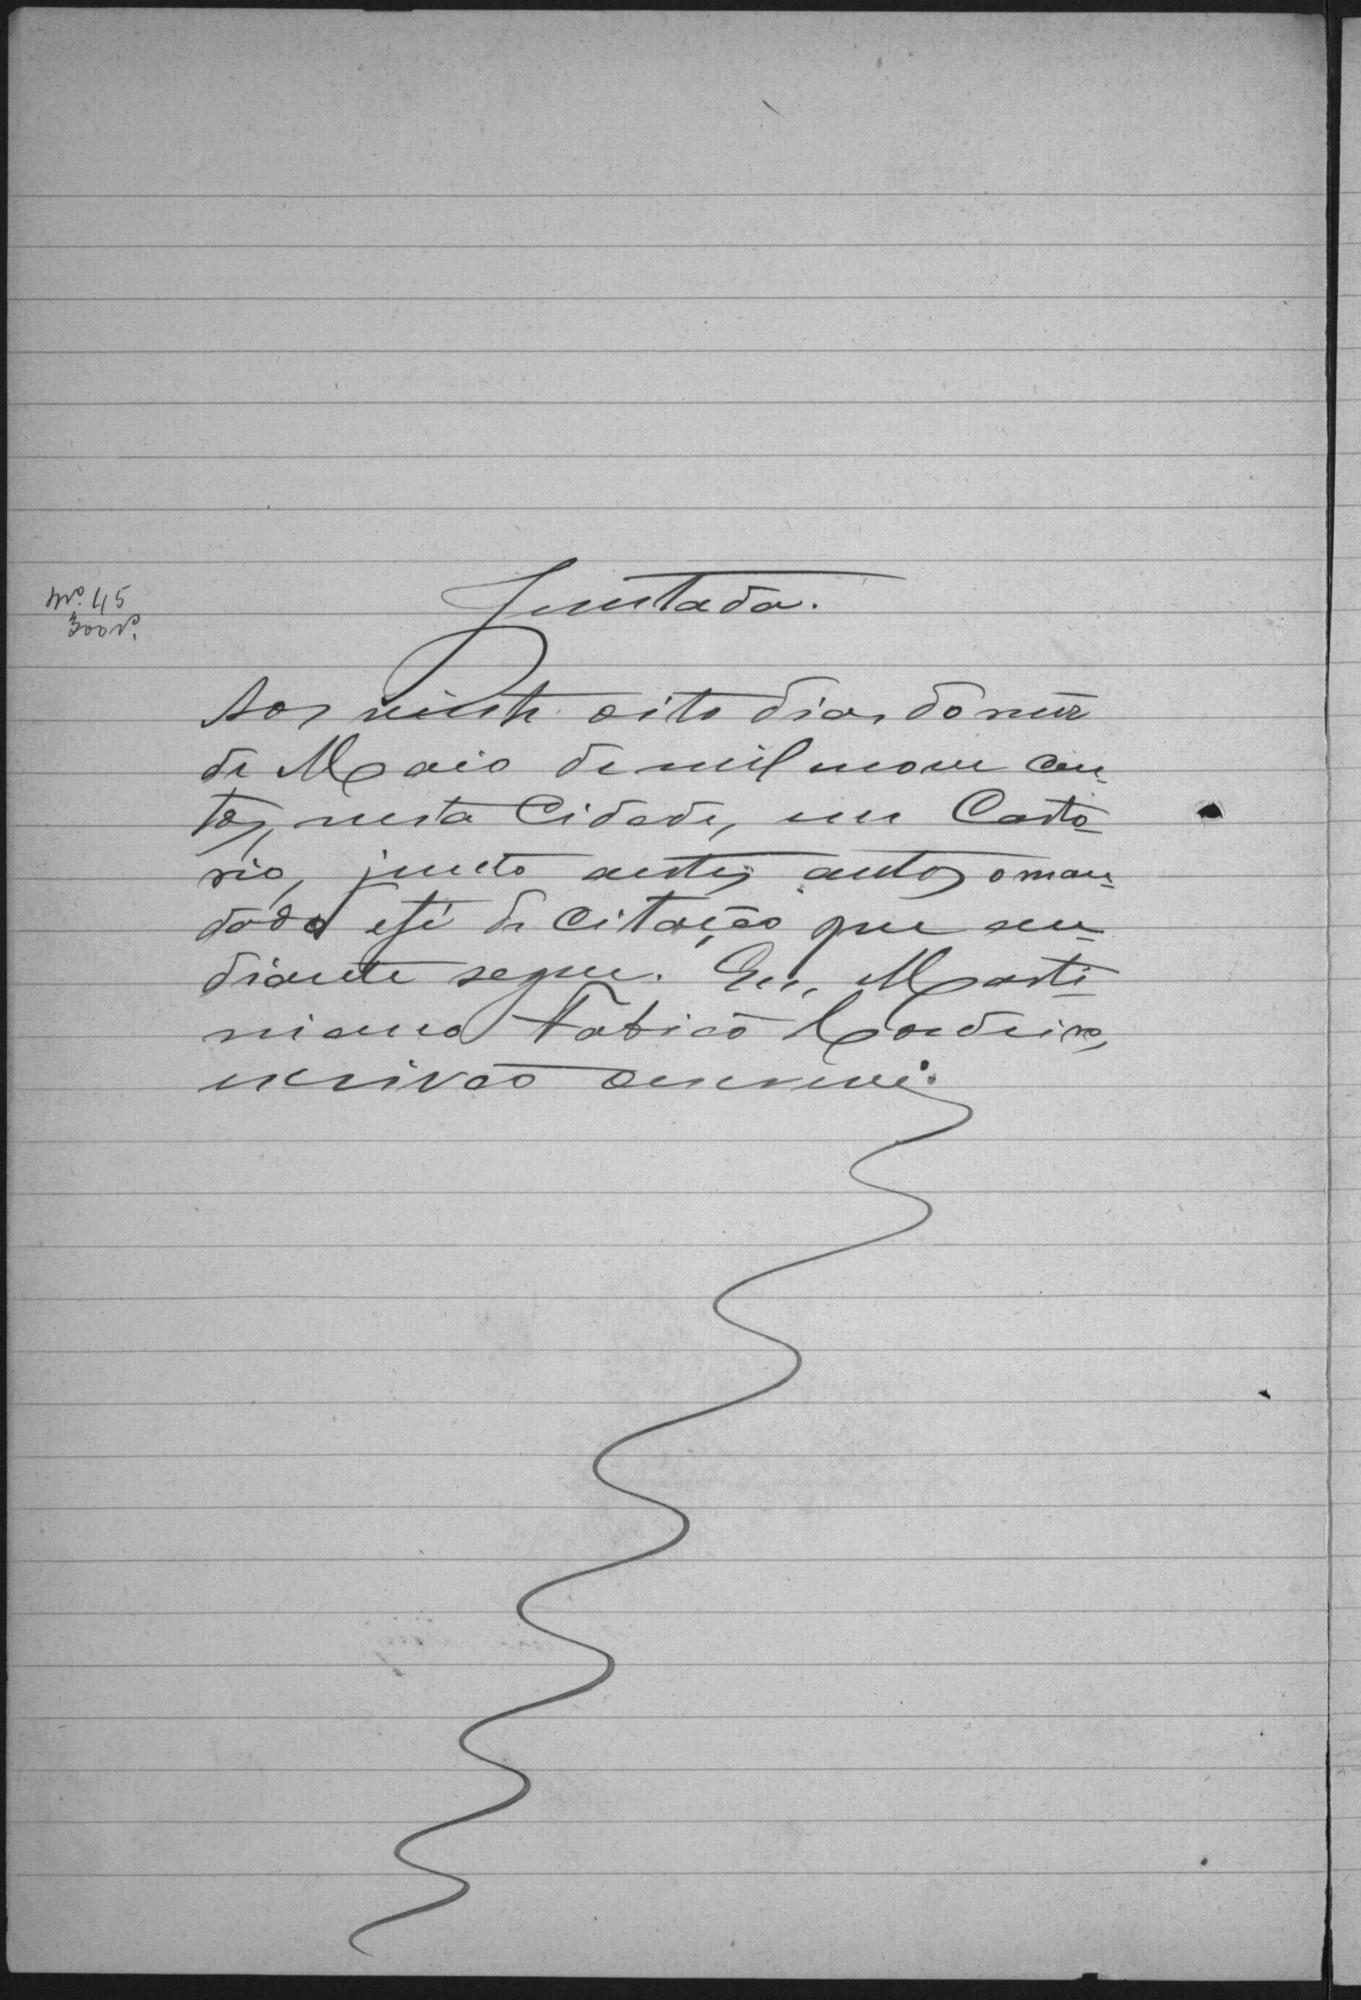 Juntada.
Nº 45
300rs.
Aos vinte oito dias do mez
de Maio de mil nove cen-
tos, nesta Cidade, em Carto-
rio, juncto aestes autos o man-
dado e fé de citação que au-
diante segue. Eu, Marti-
niano Fabião Cordeiro,
escrivão escrevi.